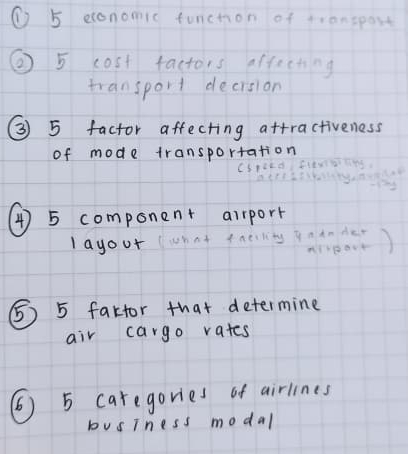 ① 5 economic function of transport
② 5 cost factors affecting
transport decision
③ 5 factor affecting attractiveness
of mode transportation
(speed, flexibility,
accessibility,
④ 5 component airport
layout (what facility
airport)
⑤ 5 faktor that determine
air cargo rates
⑥ 5 categories of airlines
business modal